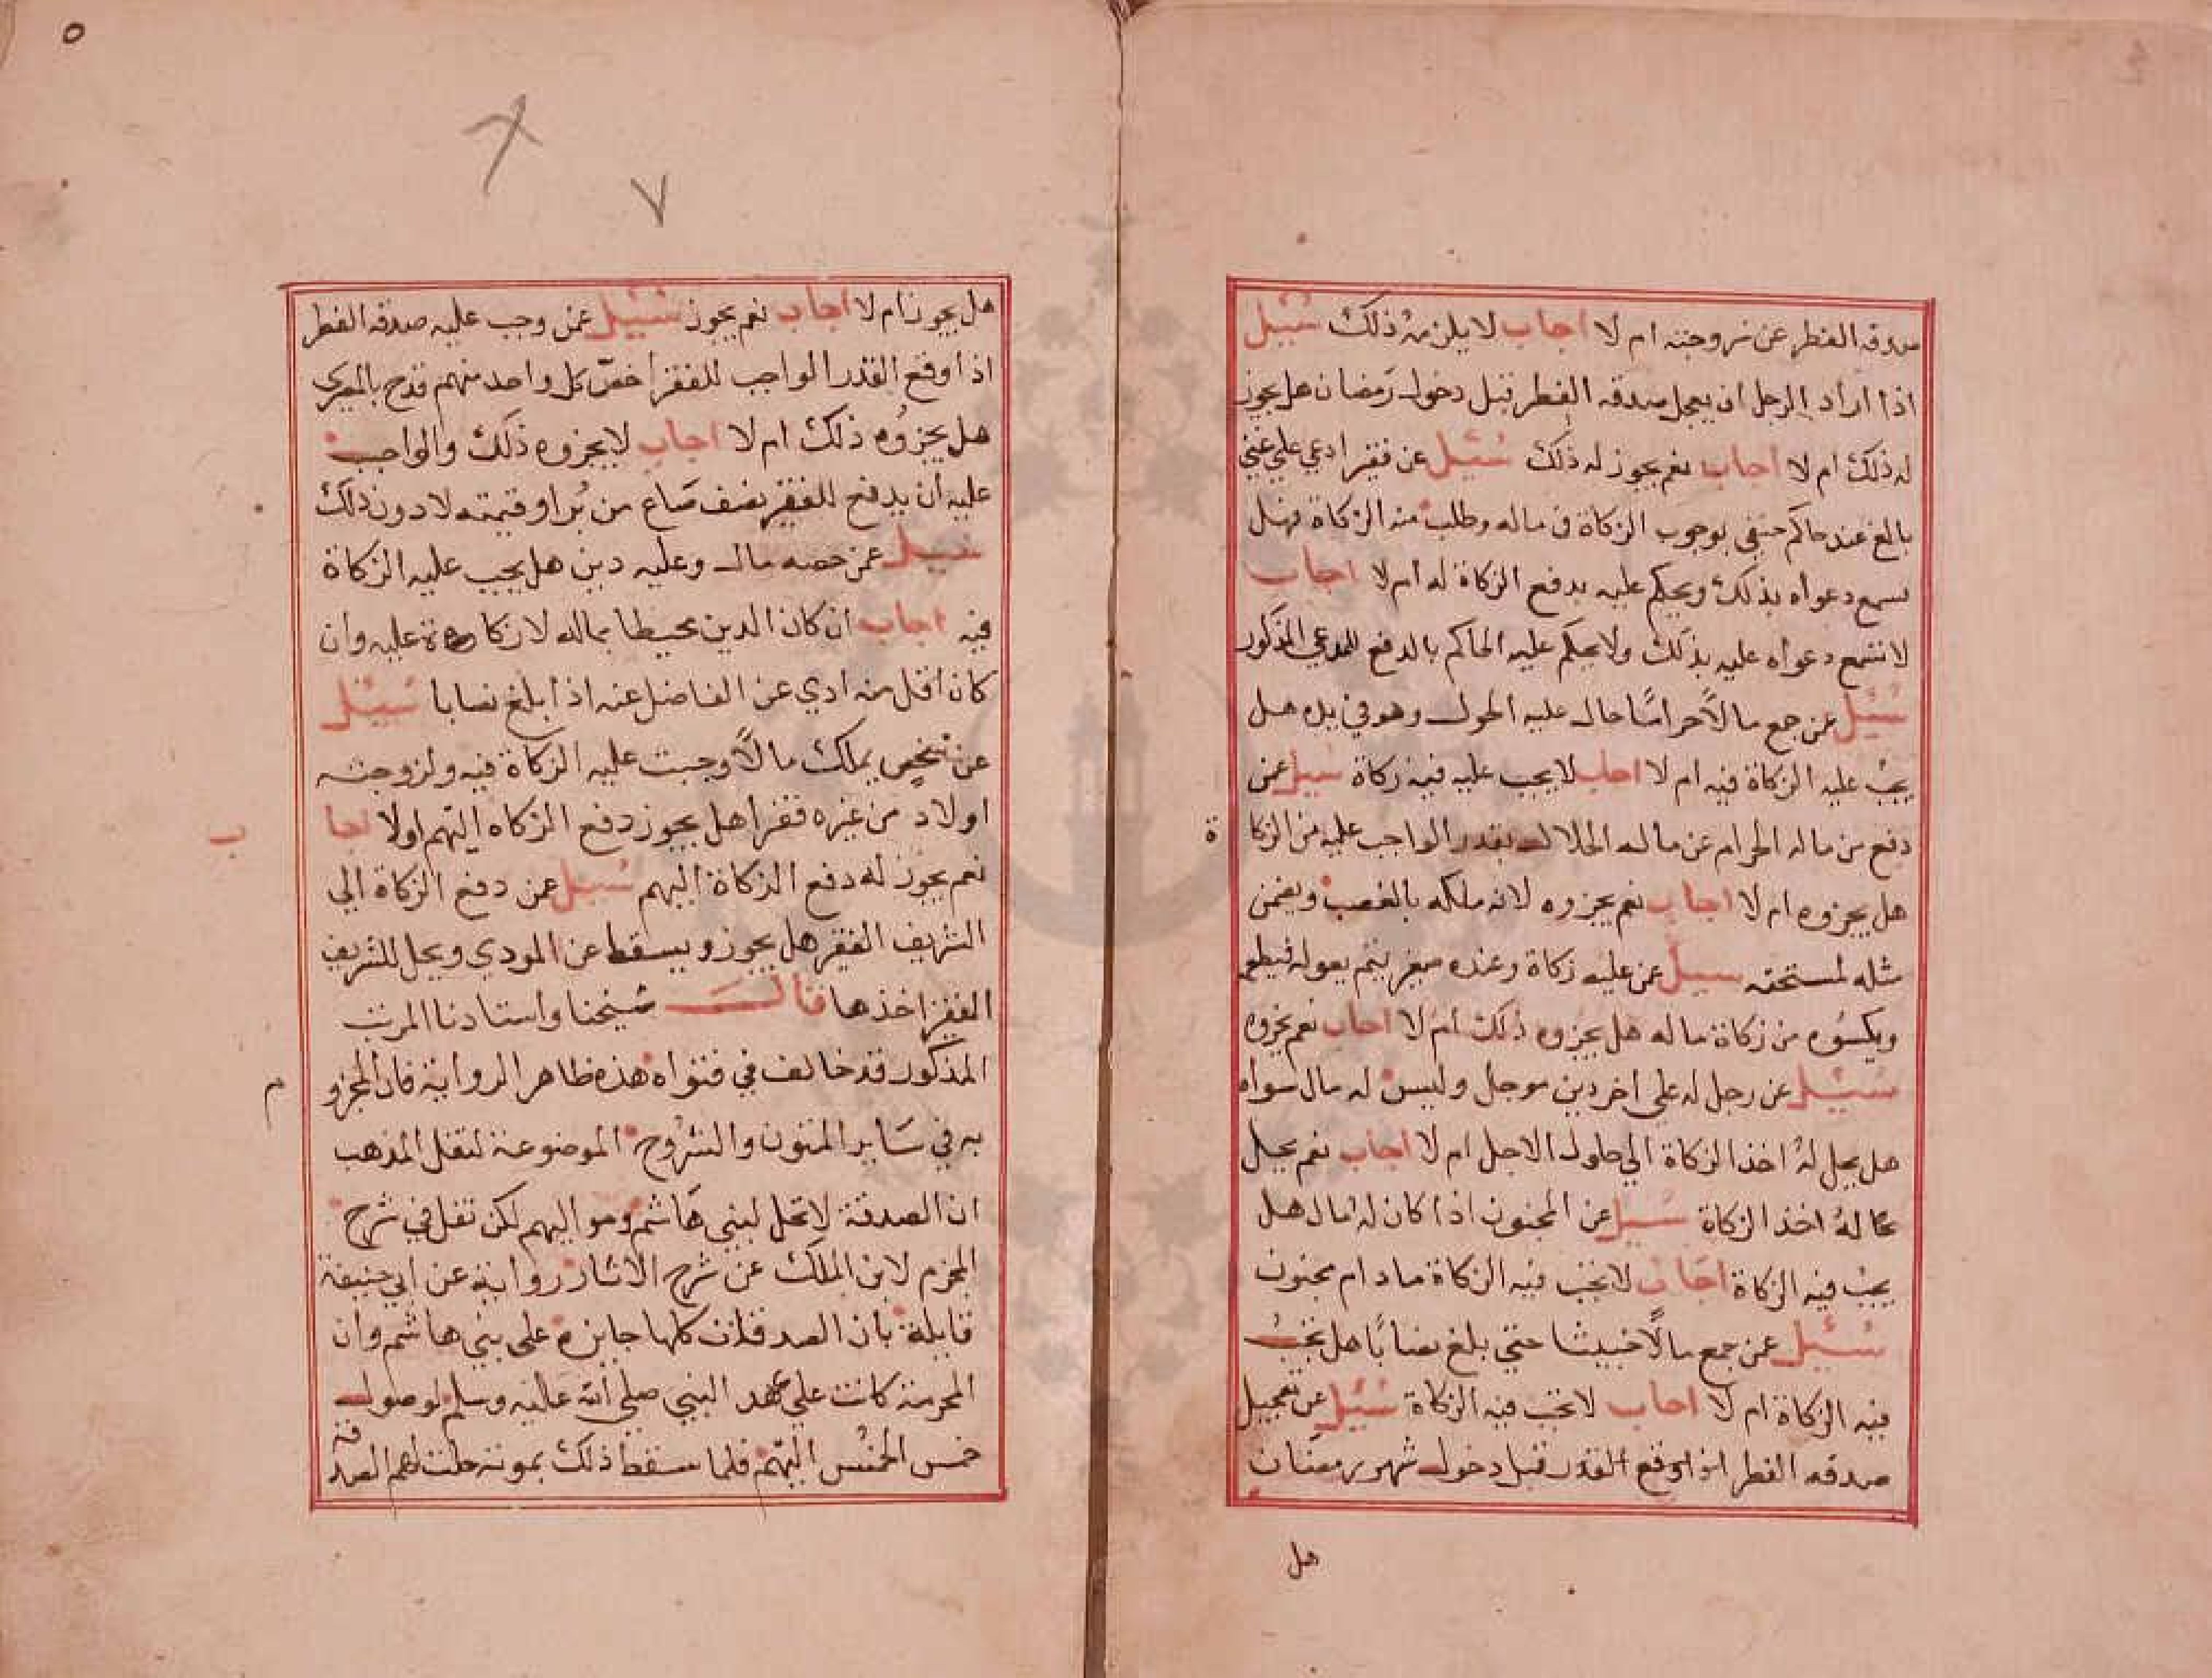 صدقه الفطر عن زوجته ام لا اجاب لا يلزمه ذلك سُئيل
اذا اراد الرجل ان يعجل صدقه الفطر قبل دخول رمضان هل يجوز
له ذلك ام لا اجاب نعم يجوز له ذلك سُئيل عن فقير ادعي علي غني
بالغ عند حاكم حنفي بوجوب الزكاة في ماله وطلب منه الزكاة فهل
تسمع دعواه بذلك ويحكم عليه بدفع الزكاة له ام لا اجاب
لا تسمع دعواه عليه بذلك ولا يحكم عليه الحاكم بالدفع للمدعي المذكور
سُئيل عن جمع مالاً حرامًا حال عليه الحول وهو في يده هل
يجب عليه الزكاة فيه ام لا اجاب لا يجب عليه فيه زكاة سيل عن
دفع من ماله الحرام عن ماله الحلال بقدر الواجب عليه من الزكا ة
هل يجزوه ام لا اجاب نعم يجزوه لانه ملكه بالغصب ويضمن
مثله لمستحقه سيل عن عليه زكاة وعنده صغير يتيم يعوله فيطعم
ويكسوه من زكاة ماله هل يجزوه ذلك ام لا اجاب نعم يجزوه
سئيل عن رجل له علي اخر دين موجل وليس له مال سواه
هل يحل لهُ اخذ الزكاة الي حلول الاجل ام لا اجاب نعم يحل
لهُ اخذ الزكاة سئيل عن المجنون اذا كان له مال هل
يجب فيه الزكاة اجاب لا تجب فيه الزكاة مادام مجنون
سُئيل عن جمع مالاً خبيثا حتي بلغ نصابًا هل تجبُ
فيه الزكاة ام لا اجاب لا تجب فيه الزكاة سُئيل عن تعجيل
صدقه الفطر اذا اوقع القدر قبل دخول شهر رمضان
هل
٥
٧
هل يجوز ام لا اجاب نعم يجوز سئيل عمن وجب عليه صدقه الفطر
اذا وقع القدر الواجب للفقرا خصّ كل واحد منهم قدح بالمصري
هل يجزوُه ذلك ام لا اجاب لا يجزوه ذلك والواجب
عليه ان يدفع للفقير نصف صَاع من بُر او قيمته لا دون ذلك
سيل عمن حصه مال وعليه دين هل يجب عليه الزكاة
فيه اجاب ان كان الدين محيطا بماله لا زكا ة عليه وان
كان اقل منه ادي عن الفاضل عنه اذا بلغ نصابا سُئيل
عن شخص يملك مالاً وجبت عليه الزكاة فيه ولزوجته
اولاد من غيره فقرا هل يجوز دفع الزكاه اليهم اولا اجا ب
نعم يجوز له دفع الزكاة اليهم سُئيل عمن دفع الزكاة الي
الشريف الفقير هل يجوز ويسقط عن المودي ويحل للشريف
الفقير اخذها قالَ شيخنا واستادنا المرتب
المذكور قد خالف في فتواه هذه ظاهر الرواية فان المجزو م
به في سَاير المتون والشروح الموضوعة لنقل المذهب
ان الصدقة لا تحل لبني هَاشم ومواليهم لكن نقل في شرح
المجزم لابن الملك عن شرح الاثار رواية عن ابي حنيفة
قايلة بان الصدقات كلها جايزه علي بني هاشم وان
الحرمة كانت علي عهد النبي صلي الله عليه وسلم لوصول
خمس الخمُس اليهم فلما سقط ذلك بموته حلت لهم الصد قة